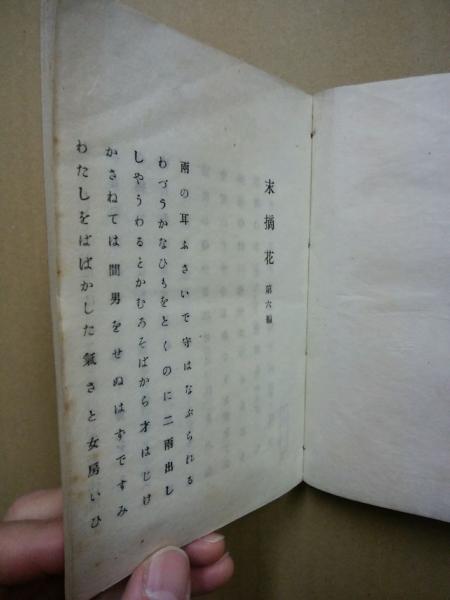 末摘花 第六編
両の耳ふさいで守はなぶられる
わづらかなひもをとくのに二両出し
しやうわるとかむろそばから才はじけ
かさねては間男をせぬはずですみ
わたしをばばかした氣さと女房いひ